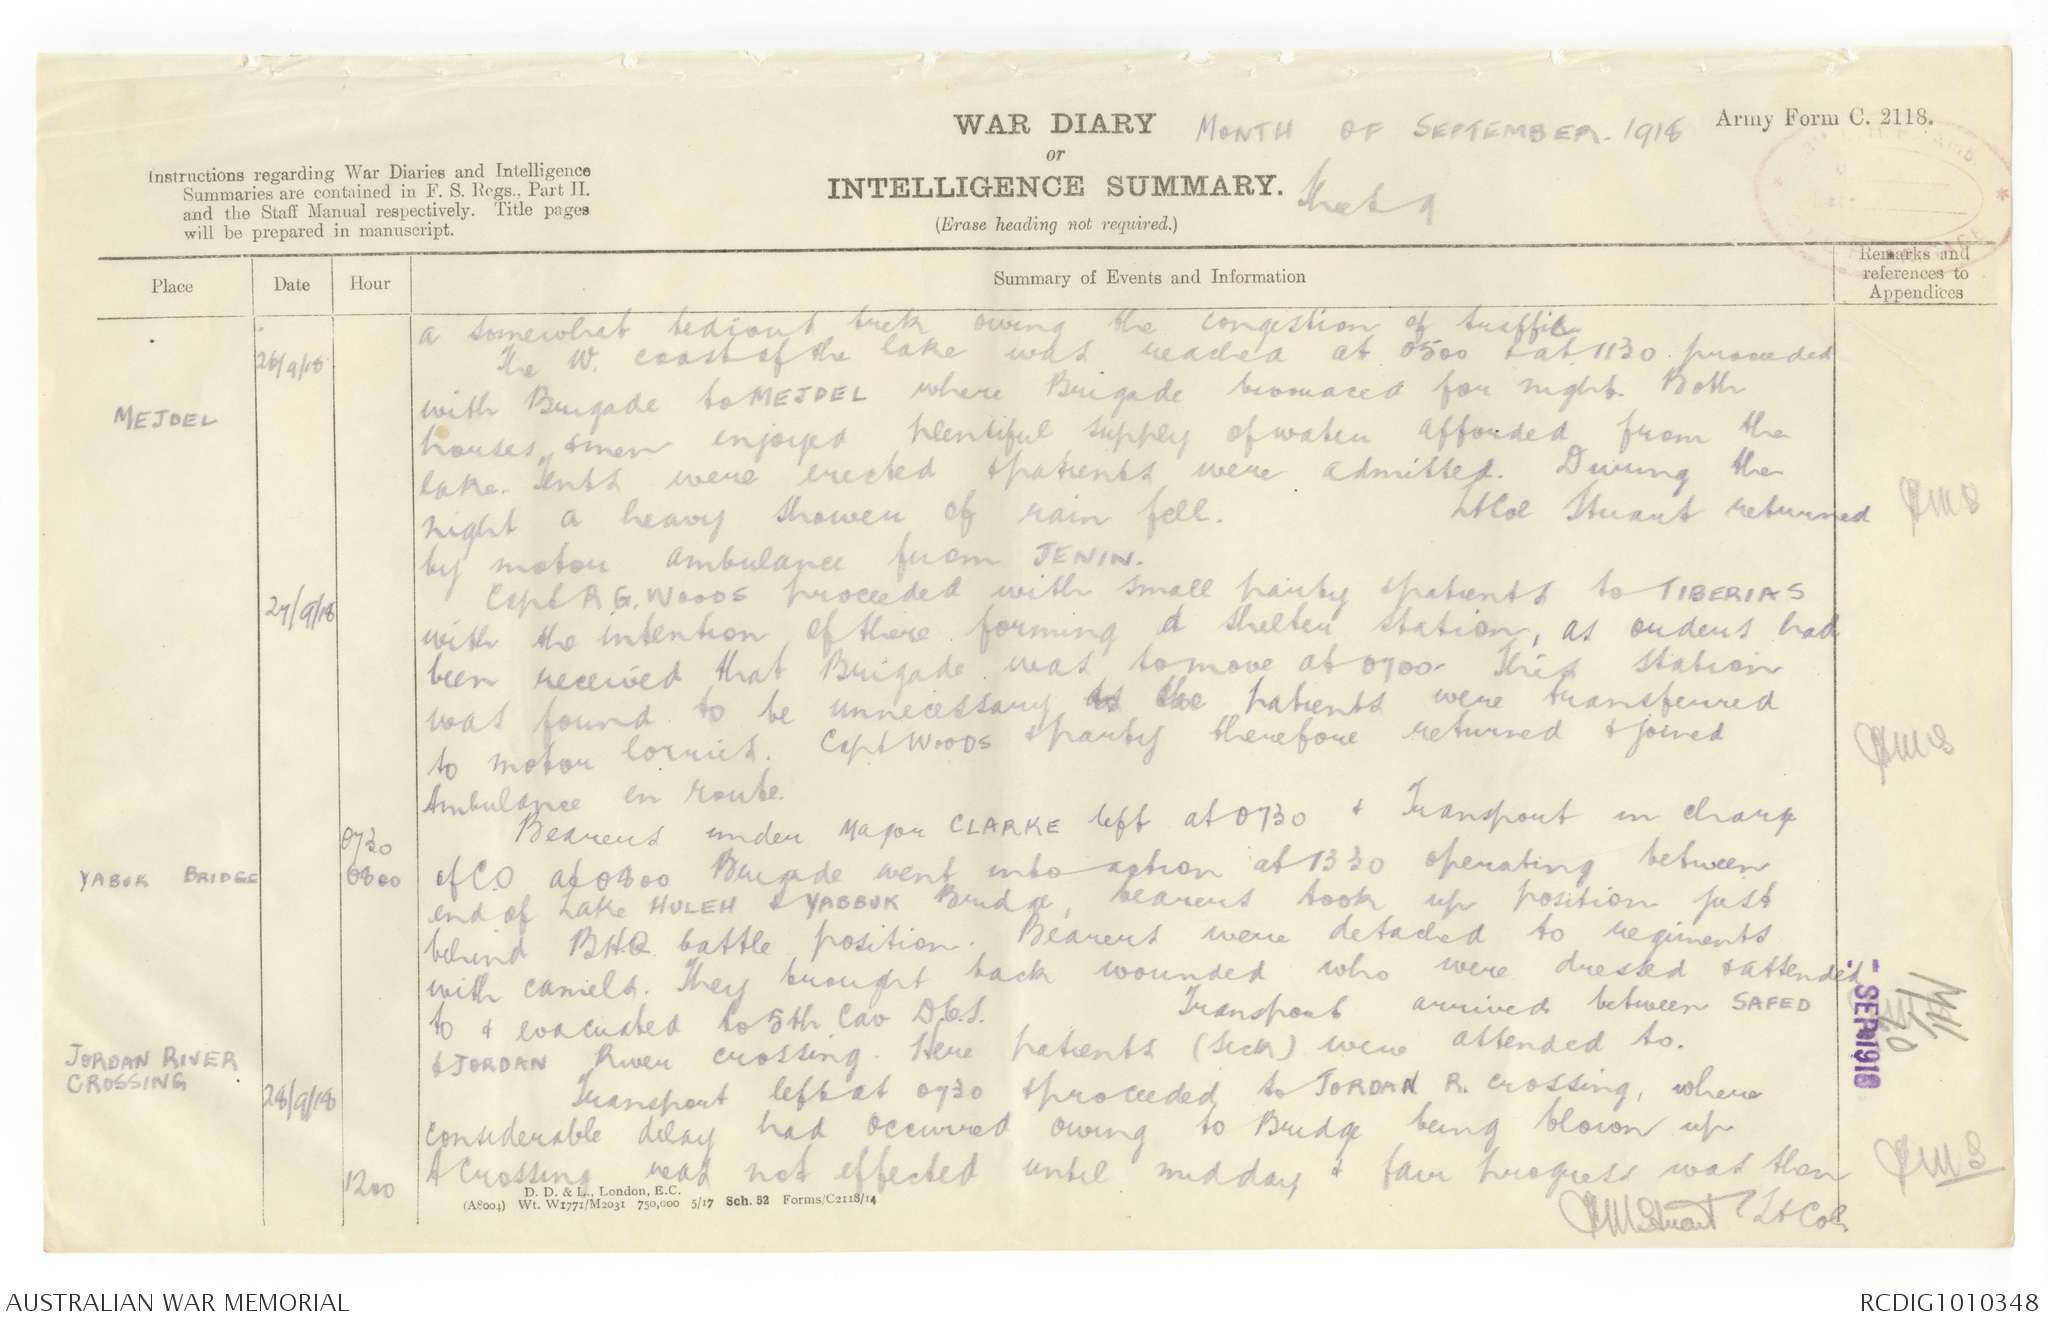 WAR DIARY
or
INTELLIGENCE SUMMARY.
(Erase heading not required.)
MONTH OF SEPTEMBER. 1918
Sheet 9
Army Form C. 2118.
Instructions regarding War Diaries and Intelligence
Summaries are contained in F. S. Regs., Part II.
and the Staff Manual respectively. Title pages
will be prepared in manuscript.
Place
Date
Hour
Summary of Events and Information
Remarks and
references to
Appendices
a somewhat tedious trek owing the congestion of traffic
26/9/18
The W. coast of the lake was reached at 0500 & at 1130 proceeded
MEJDEL
with Brigade to MEJDEL where Brigade bivouaced for night. Both
horses & men enjoyed plentiful supply of water afforded from the
lake. Tents were erected & patients were admitted. During the
night a heavy shower of rain fell. Lt Col Stuart returned
by motor ambulance from JENIN.
27/9/18
Capt R G. WOODS proceeded with small party & patients to TIBERIAS
with the intention of there forming a shelter station, as orders had
been received that Brigade was to move at 0700 This station
was found to be unnecessary as the patients were transferred
to motor lorries. Capt WOODS & party therefore returned & joined
Ambulance en route.
0730
Bearers under Major CLARKE left at 0730 & Transport in charge
YABUK BRIDGE
0800
of C.O at 0800 Brigade went into action at 1330 operating between
end of Lake HULEH & YABBUK Bridge, bearers took up position just
behind BHQ battle position. Bearers were detached to regiments
with camels. They brought back wounded who were dressed & attended
to & evacuated to 5th Cav D.C.S. Transport arrived between SAFED
& JORDAN River crossing. Here patients (sick) were attended to.
JORDAN RIVER
CROSSING
28/9/18
Transport left at 0730 & proceeded to JORDAN R. crossing, where
considerable delay had occurred owing to Bridge being blown up
1200
& crossing was not effected until midday & fair progress was then
JMS
JMS
- SEP 1918
JMS
JMStuart Lt Col.
D. D. & L., London, E.C.
(A8004) Wt. W1771/M2031 750,000 5/17 Sch. 52 Forms/C2118/14
AUSTRALIAN WAR MEMORIAL
RCDIG1010348